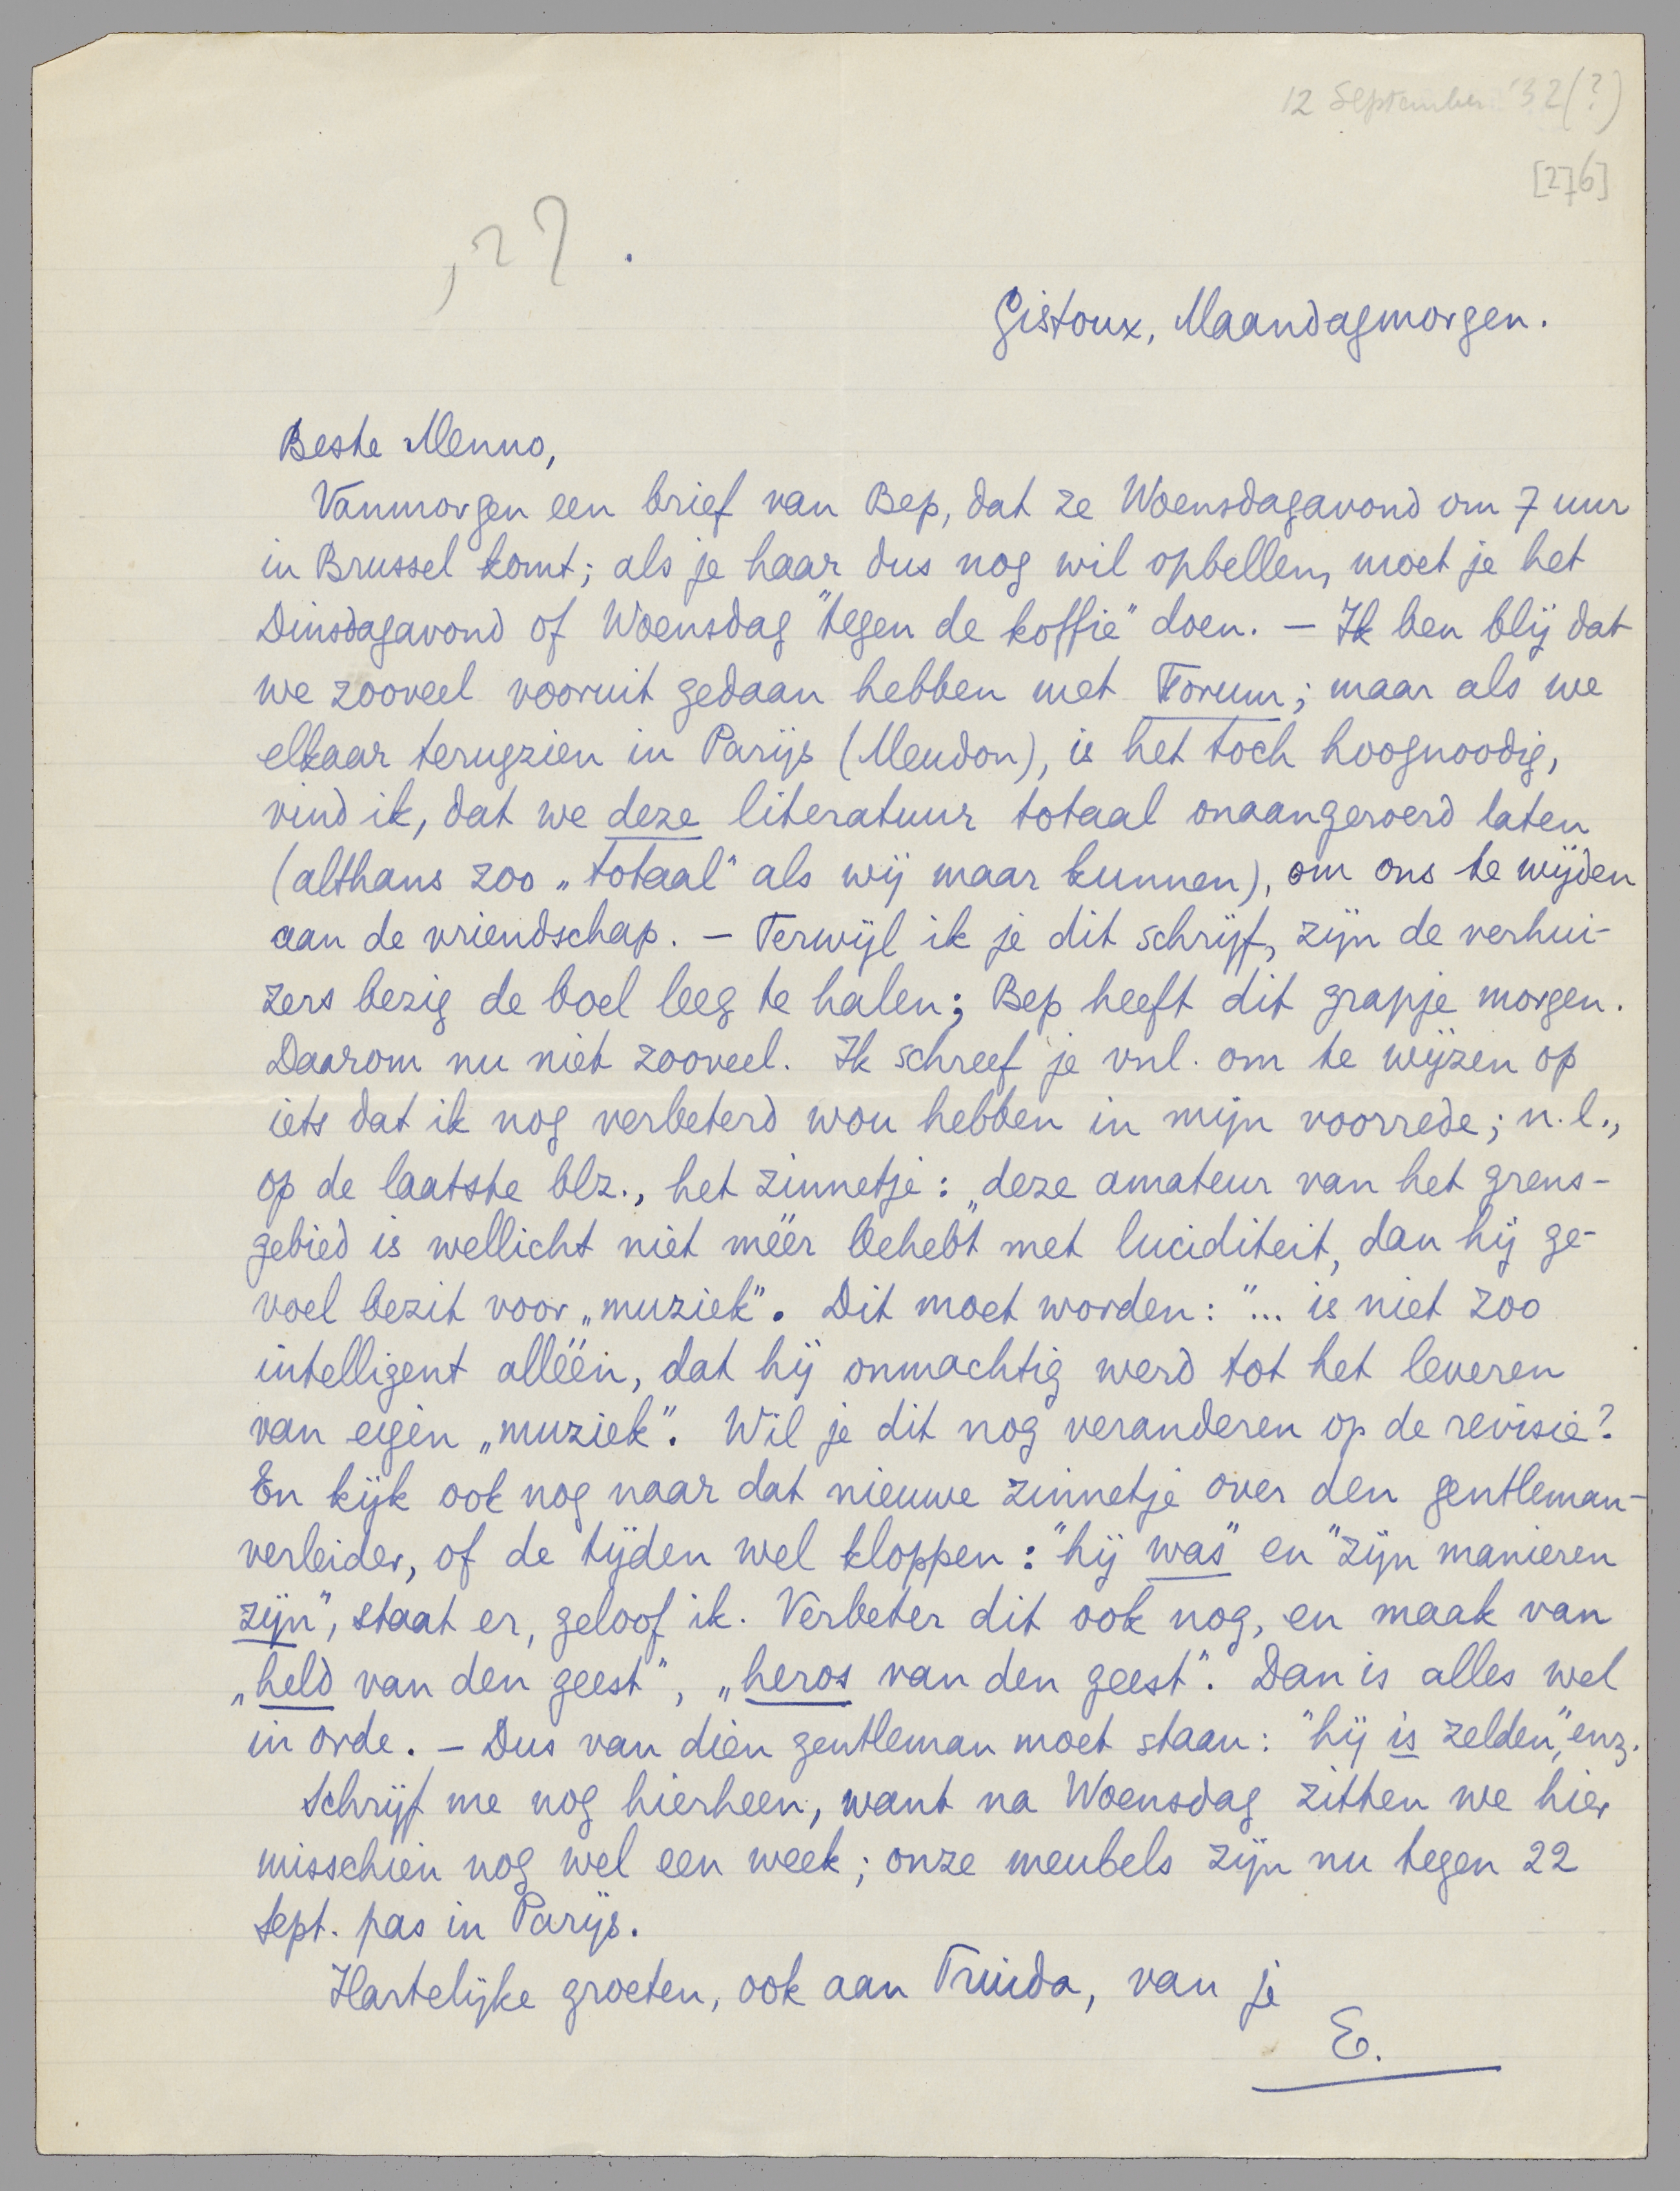 12 September '32(?)
[276]
, ? ? .
Gistoux, Maandagmorgen.
Beste Menno,
Vanmorgen een brief van Bep, dat ze Woensdagavond om 7 uur
in Brussel komt; als je haar dus nog wil opbellen, moet je het
Dinsdagavond of Woensdag "tegen de koffie" doen. – Ik ben blij dat
we zooveel vooruit gedaan hebben met Forum; maar als we
elkaar terugzien in Parijs (Meudon), is het toch hoognoodig,
vind ik, dat we deze literatuur totaal onaangeroerd laten
(althans zoo „totaal" als wij maar kunnen), om ons te wijden
aan de vriendschap. – Terwijl ik je dit schrijf, zijn de verhui-
zers bezig de boel leeg te halen; Bep heeft dit grapje morgen.
Daarom nu niet zooveel. Ik schreef je vnl. om te wijzen op
iets dat ik nog verbeterd wou hebben in mijn voorrede; n.l.,
op de laatste blz., het zinnetje: „deze amateur van het grens-
gebied is wellicht niet méér behebt met luciditeit, dan hij ge-
voel bezit voor „muziek". Dit moet worden: "... is niet zoo
intelligent alléén, dat hij onmachtig werd tot het leveren
van eigen „muziek". Wil je dit nog veranderen op de revisie?
En kijk ook nog naar dat nieuwe zinnetje over den gentleman-
verleider, of de tijden wel kloppen: "hij was" en "zijn manieren
zijn", staat er, geloof ik. Verbeter dit ook nog, en maak van
„held van den geest", „heros van den geest". Dan is alles wel
in orde. – Dus van dien gentleman moet staan: "hij is zelden", enz.
Schrijf me nog hierheen, want na Woensdag zitten we hier
misschien nog wel een week; onze meubels zijn nu tegen 22
Sept. pas in Parijs.
Hartelijke groeten, ook aan Truida, van je
E.